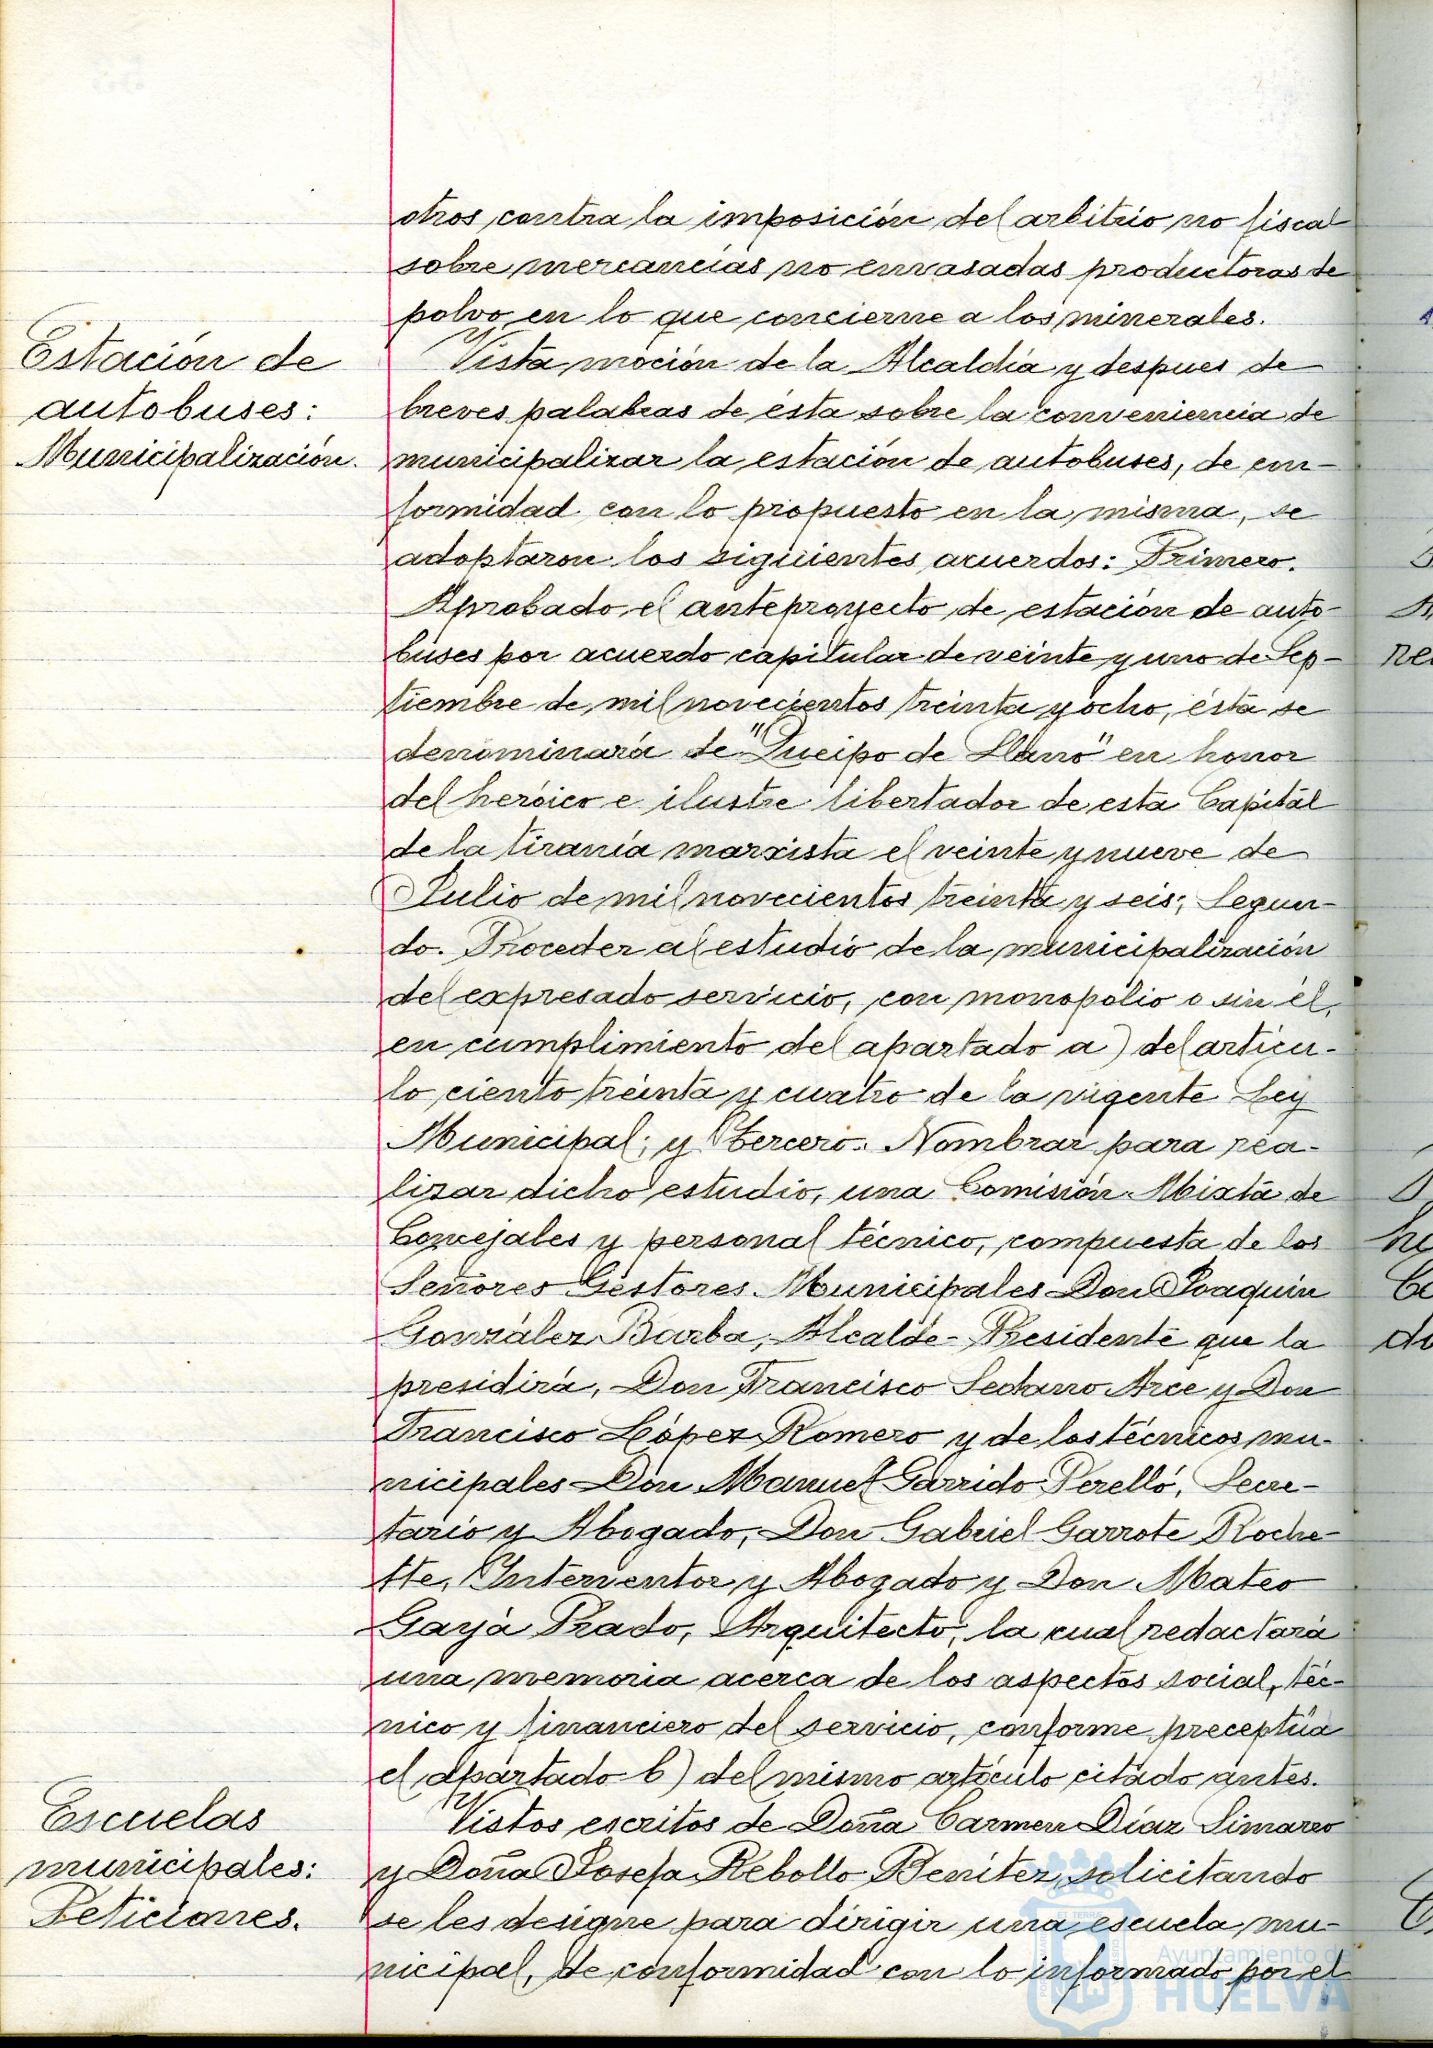 otros contra la imposición del arbitrio no fiscal
sobre mercancías no envasadas productoras de
polvo en lo que concierne a los minerales.
Estación de
autobuses:
Municipalización.
Vista moción de la Alcaldía y despues de
breves palabras de ésta sobre la conveniencia de
municipalizar la estación de autobuses, de con-
formidad con lo propuesto en la misma, se
adoptaron los siguientes acuerdos: Primero.
Aprobado el anteproyecto de estación de auto-
buses por acuerdo capitular de veinte y uno de Sep-
tiembre de mil novecientos treinta y ocho, ésta se
denominará de "Queipo de Llano" en honor
del heróico e ilustre libertador de esta Capital
de la tiranía marxista el veinte y nueve de
Julio de mil novecientos treinta y seis; Segun-
do. Proceder al estudio de la municipalización
del expresado servicio, con monopolio o sin él,
en cumplimiento del apartado a) del artícu-
lo ciento treinta y cuatro de la vigente Ley
Municipal; y Tercero. Nombrar para rea-
lizar dicho estudio, una Comisión Mixta de
Concejales y personal técnico, compuesta de los
Señores Gestores Municipales Don Joaquín
González Barba, Alcalde-Presidente que la
presidirá, Don Francisco Sedano Arce y Don
Francisco López Romero y de los técnicos mu-
nicipales Don Manuel Garrido Perelló, Secre-
tario y Abogado, Don Gabriel Garrote Roche-
tte, Interventor y Abogado y Don Mateo
Gayá Prado, Arquitecto, la cual redactará
una memoria acerca de los aspectos social, téc-
nico y financiero del servicio, conforme preceptúa
el apartado b) del mismo artículo citado antes.
Escuelas
municipales:
Peticiones.
Vistos escritos de Doña Carmen Díaz Simarro
y Doña Josefa Rebollo Benítez, solicitando
se les designe para dirigir una escuela mu-
nicipal, de conformidad con lo informado por el
Ayuntamiento de
HUELVA